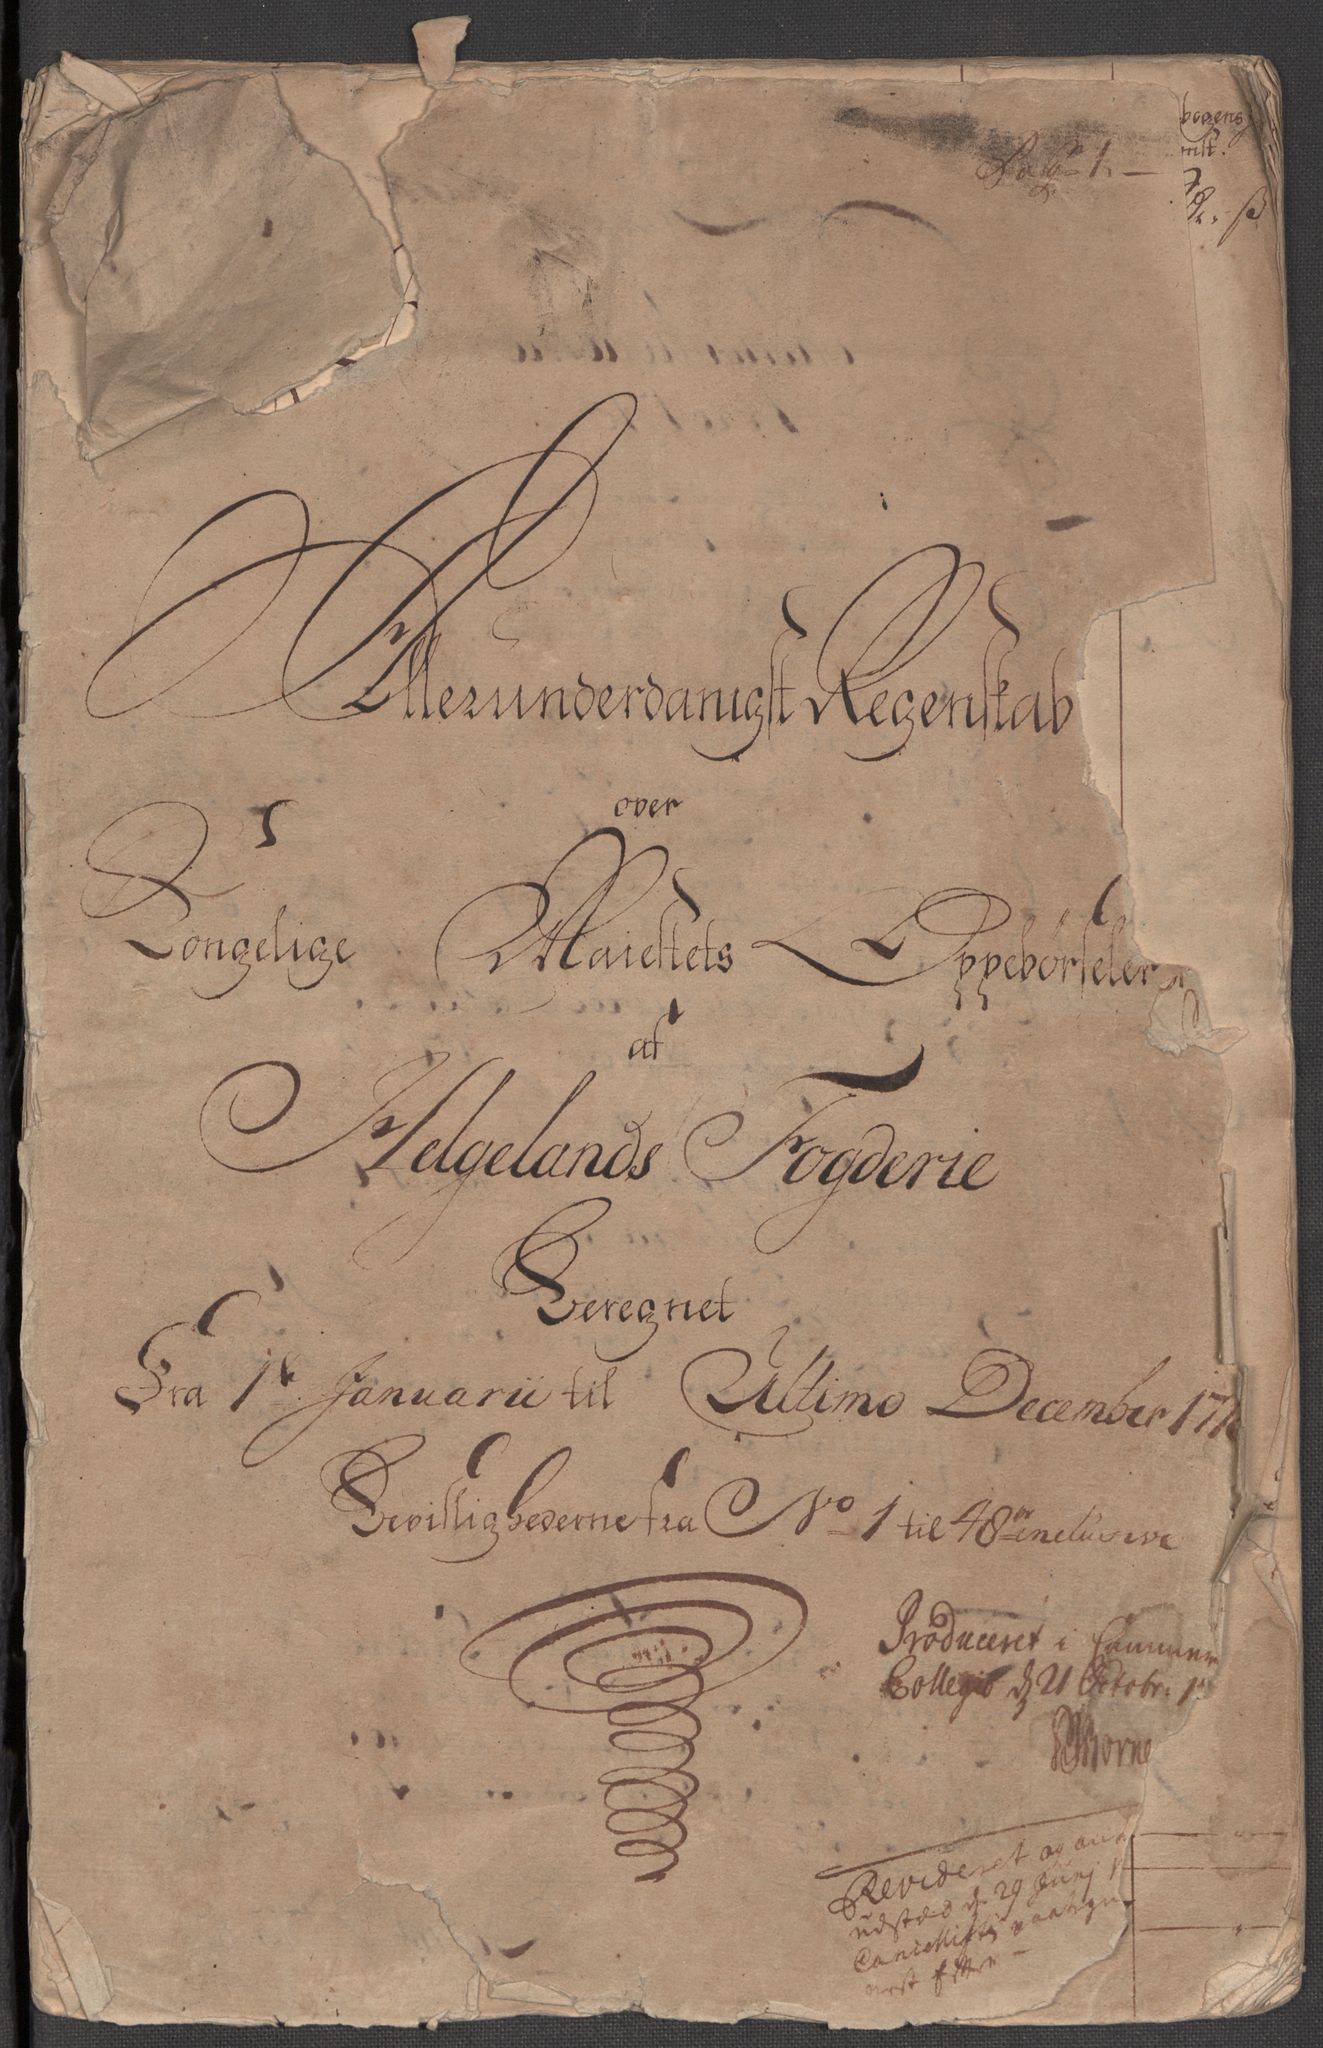 Pag: 1.
bogens
Allerunderdanigst Regenskab
over
Kongelige Maiestets Oppebørseler
af
Helgelands Fogderie
Beregnet
Fra 1te Januarii til Ultimo December 171
Bevillighederne fra No 1 til 48de inclusive
Produceret i Cammer
Collegio d 21 Octobr: 1
Revideret og
udsted d. 29 Junj 1